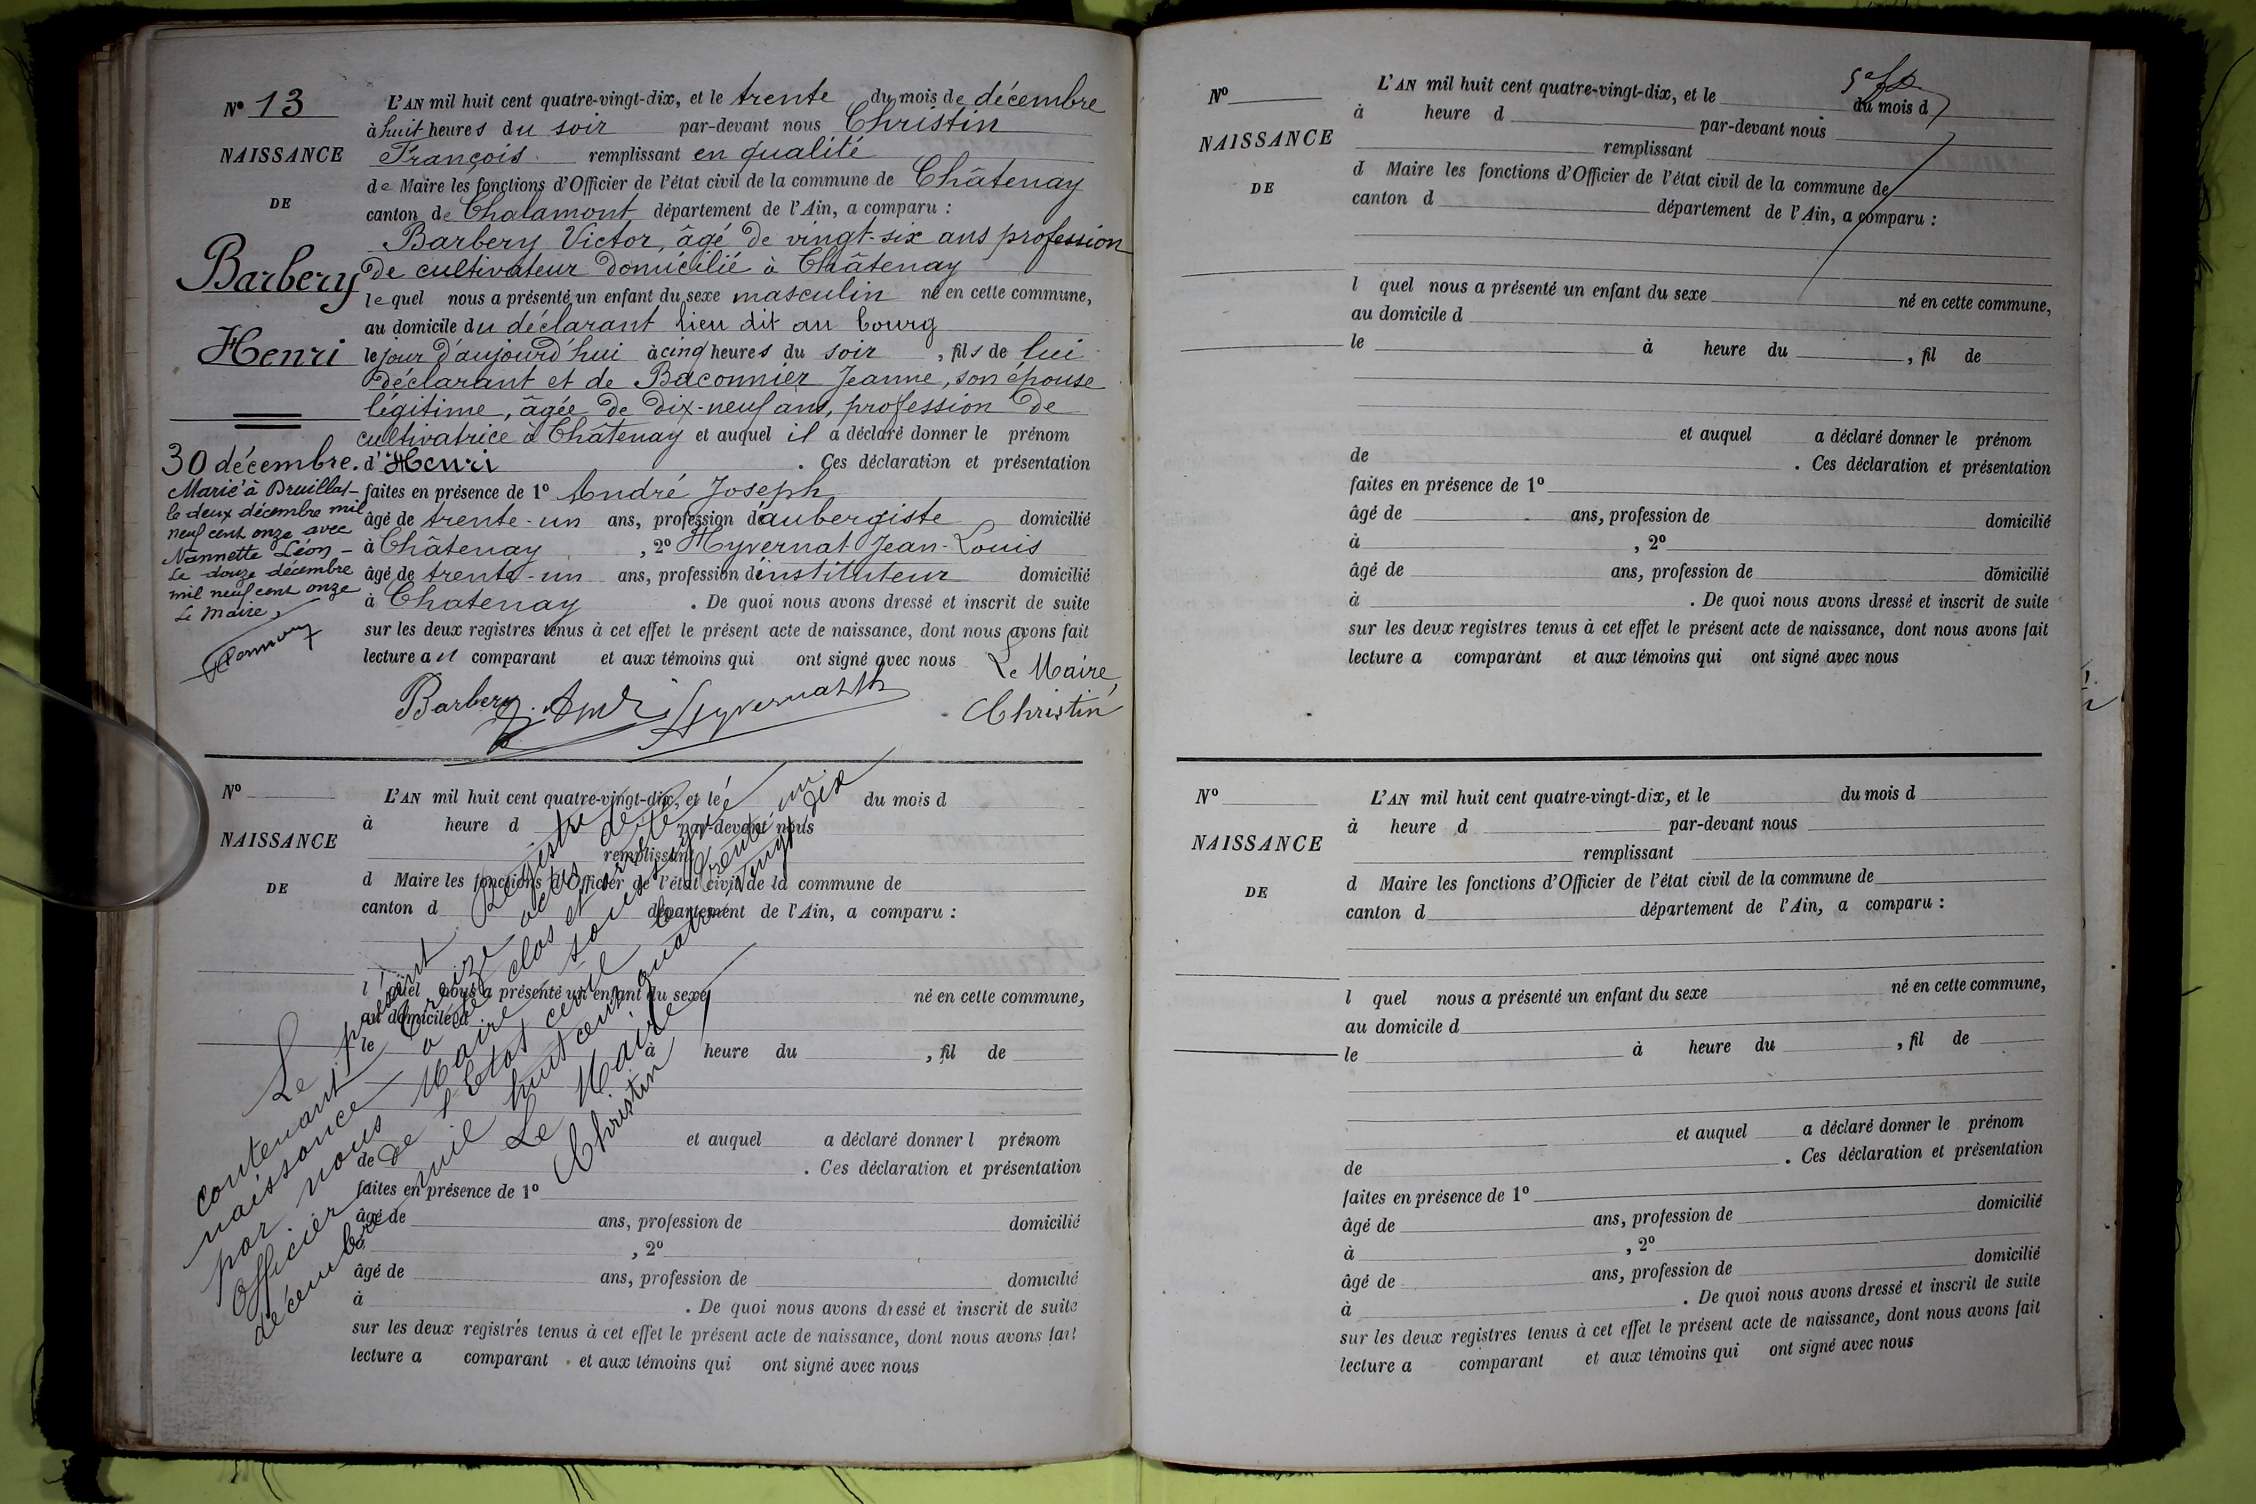 N° 13
NAISSANCE
DE
Barbery
Henri
30 décembre.
Marié à Druillat
le deux décembre mil
neuf cent onze avec
Nannette Léon
Le douze décembre
mil neuf cent onze
Le Maire,
L'AN mil huit cent quatre-vingt-dix, et le trente du mois de décembre
à huit heures du soir par-devant nous Christin
François remplissant en qualité
de Maire les fonctions d'Officier de l'état civil de la commune de Châtenay
canton de Chalamont département de l'Ain, a comparu :
Barbery Victor, âgé de vingt-six ans profession
de cultivateur domicilié à Châtenay
lequel nous a présenté un enfant du sexe masculin né en cette commune,
au domicile du déclarant lieu dit au bourg
le jour d'aujourd'hui à cinq heures du soir , fils de lui
déclarant et de Baconnier Jeanne, son épouse
légitime, âgée de dix-neuf ans, profession de
cultivatrice à Châtenay et auquel il a déclaré donner le prénom
d'Henri . Ces déclaration et présentation
faites en présence de 1° André Joseph
âgé de trente-un ans, profession d'aubergiste domicilié
à Châtenay , 2° Hyvernat Jean-Louis
âgé de trente-un ans, profession d'instituteur domicilié
à Chatenay . De quoi nous avons dressé et inscrit de suite
sur les deux registres tenus à cet effet le présent acte de naissance, dont nous avons fait
lecture au comparant et aux témoins qui ont signé avec nous
Le Maire,
Barbery André Hyvernat Christin
N°
NAISSANCE
DE
L'AN mil huit cent quatre-vingt-dix, et le du mois d
à heure d par-devant nous
remplissant
d Maire les fonctions d'Officier de l'état civil de la commune de
canton d département de l'Ain, a comparu :
l quel nous a présenté un enfant du sexe né en cette commune,
au domicile d
le à heure du , fil de
et auquel a déclaré donner l prénom
de . Ces déclaration et présentation
faites en présence de 1°
âgé de ans, profession de domicilié
à , 2°
âgé de ans, profession de domicilié
à . De quoi nous avons dressé et inscrit de suite
sur les deux registres tenus à cet effet le présent acte de naissance, dont nous avons fait
lecture a comparant et aux témoins qui ont signé avec nous
Le présent Registre
contenant treize actes de
naissance a été clos et arrêté
par nous Maire soussigné
Officier de l'Etat civil le trente un
décembre mil huit cent quatre vingt dix
Le Maire
Christin
N°
NAISSANCE
DE
L'AN mil huit cent quatre-vingt-dix, et le du mois d
à heure d par-devant nous
remplissant
d Maire les fonctions d'Officier de l'état civil de la commune de
canton d département de l'Ain, a comparu :
l quel nous a présenté un enfant du sexe né en cette commune,
au domicile d
le à heure du , fil de
et auquel a déclaré donner le prénom
de . Ces déclaration et présentation
faites en présence de 1°
âgé de ans, profession de domicilié
à , 2°
âgé de ans, profession de domicilié
à . De quoi nous avons dressé et inscrit de suite
sur les deux registres tenus à cet effet le présent acte de naissance, dont nous avons fait
lecture a comparant et aux témoins qui ont signé avec nous
N°
NAISSANCE
DE
L'AN mil huit cent quatre-vingt-dix, et le du mois d
à heure d par-devant nous
remplissant
d Maire les fonctions d'Officier de l'état civil de la commune de
canton d département de l'Ain, a comparu :
l quel nous a présenté un enfant du sexe né en cette commune,
au domicile d
le à heure du , fil de
et auquel a déclaré donner le prénom
de . Ces déclaration et présentation
faites en présence de 1°
âgé de ans, profession de domicilié
à , 2°
âgé de ans, profession de domicilié
à . De quoi nous avons dressé et inscrit de suite
sur les deux registres tenus à cet effet le présent acte de naissance, dont nous avons fait
lecture a comparant et aux témoins qui ont signé avec nous